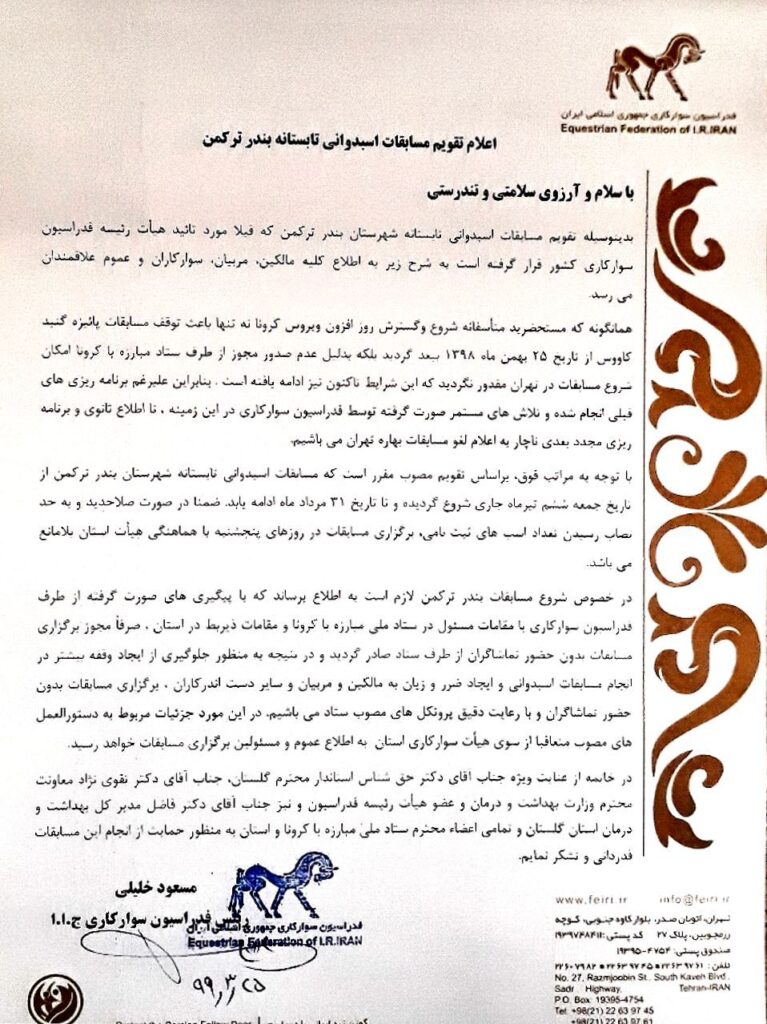 فدراسیون سوارکاری جمهوری اسلامی ایران
Equestrian Federation of I.R.IRAN
اعلام تقویم مسابقات اسبدوانی تابستانه بندر ترکمن
با سلام و آرزوی سلامتی و تندرستی
بدینوسیله تقویم مسابقات اسبدوانی تابستانه شهرستان بندر ترکمن که قبلا مورد تائید هیأت رئیسه فدراسیون
سوارکاری کشور قرار گرفته است به شرح زیر به اطلاع کلیه مالکین، مربیان، سوارکاران و عموم علاقمندان
می رسد.
همانگونه که مستحضرید متأسفانه شروع وگسترش روز افزون ویروس کرونا نه تنها باعث توقف مسابقات پائیزه گنبد
کاووس از تاریخ ۲۵ بهمن ماه ۱۳۹۸ ببعد گردید بلکه بدلیل عدم صدور مجوز از طرف ستاد مبارزه با کرونا امکان
شروع مسابقات در تهران مقدور نگردید که این شرایط تاکنون نیز ادامه یافته است . بنابراین علیرغم برنامه ریزی های
قبلی انجام شده و تلاش های مستمر صورت گرفته توسط فدراسیون سوارکاری در این زمینه ، تا اطلاع ثانوی و برنامه
ریزی مجدد بعدی ناچار به اعلام لغو مسابقات بهاره تهران می باشیم.
با توجه به مراتب فوق، براساس تقویم مصوب مقرر است که مسابقات اسبدوانی تابستانه شهرستان بندر ترکمن از
تاریخ جمعه ششم تیرماه جاری شروع گردیده و تا تاریخ ۳۱ مرداد ماه ادامه یابد. ضمنا در صورت صلاحدید و به حد
نصاب رسیدن تعداد اسب های ثبت نامی، برگزاری مسابقات در روزهای پنجشنبه با هماهنگی هیأت استان بلامانع
می باشد.
در خصوص شروع مسابقات بندر ترکمن لازم است به اطلاع برساند که با پیگیری های صورت گرفته از طرف
فدراسیون سوارکاری با مقامات مسئول در ستاد ملی مبارزه با کرونا و مقامات ذیربط در استان ، صرفاً مجوز برگزاری
مسابقات بدون حضور تماشاگران از طرف ستاد صادر گردید و در نتیجه به منظور جلوگیری از ایجاد وقفه بیشتر در
انجام مسابقات اسبدوانی و ایجاد ضرر و زیان به مالکین و مربیان و سایر دست اندرکاران ، برگزاری مسابقات بدون
حضور تماشاگران و با رعایت دقیق پروتکل های مصوب ستاد می باشیم. در این مورد جزئیات مربوط به دستورالعمل
های مصوب متعاقبا از سوی هیأت سوارکاری استان به اطلاع عموم و مسئولین برگزاری مسابقات خواهد رسید.
در خاتمه از عنایت ویژه جناب اقای دکتر حق شناس استاندار محترم گلستان، جناب آقای دکتر تقوی نژاد معاونت
محترم وزارت بهداشت و درمان و عضو هیأت رئیسه فدراسیون و نیز جناب آقای دکتر فاضل مدیر کل بهداشت و
درمان استان گلستان و تمامی اعضاء محترم ستاد ملی مبارزه با کرونا و استان به منظور حمایت از انجام این مسابقات
قدردانی و تشکر نمایم.
مسعود خلیلی
رئیس فدراسیون سوارکاری ج.ا.ا
فدراسیون سوارکاری جمهوری اسلامی ایران
Equestrian Federation of I.R.IRAN
۹۹٫۳٫۲۵
www.feiri.ir info@feiri.ir
تهران، اتوبان صدر، بلوارکاوه جنوبی، کوچه
رزمجویین، پلاک ۲۷ کد پستی: ۱۹۳۹۷۴۸۴۱۱
صندوق پستی: ۴۷۵۴-۱۹۳۹۵
تلفن: ۲۲۶۳۹۷۶۱ • ۲۲۶۳۹۷۴۵ • ۲۲۶۰۷۹۸۲
No. 27, Razmjoobin St., South Kaveh Blvd.,
Sadr Highway, Tehran-IRAN
P.O. Box: 19395-4754
Tel: +98(21) 22 63 97 45
+98(21) 22 63 97 61